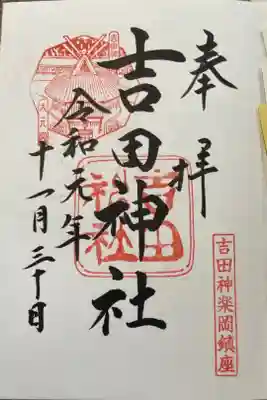 奉拝
吉田神社
令和元年
十一月三十日
吉田神社
吉田神楽岡鎮座